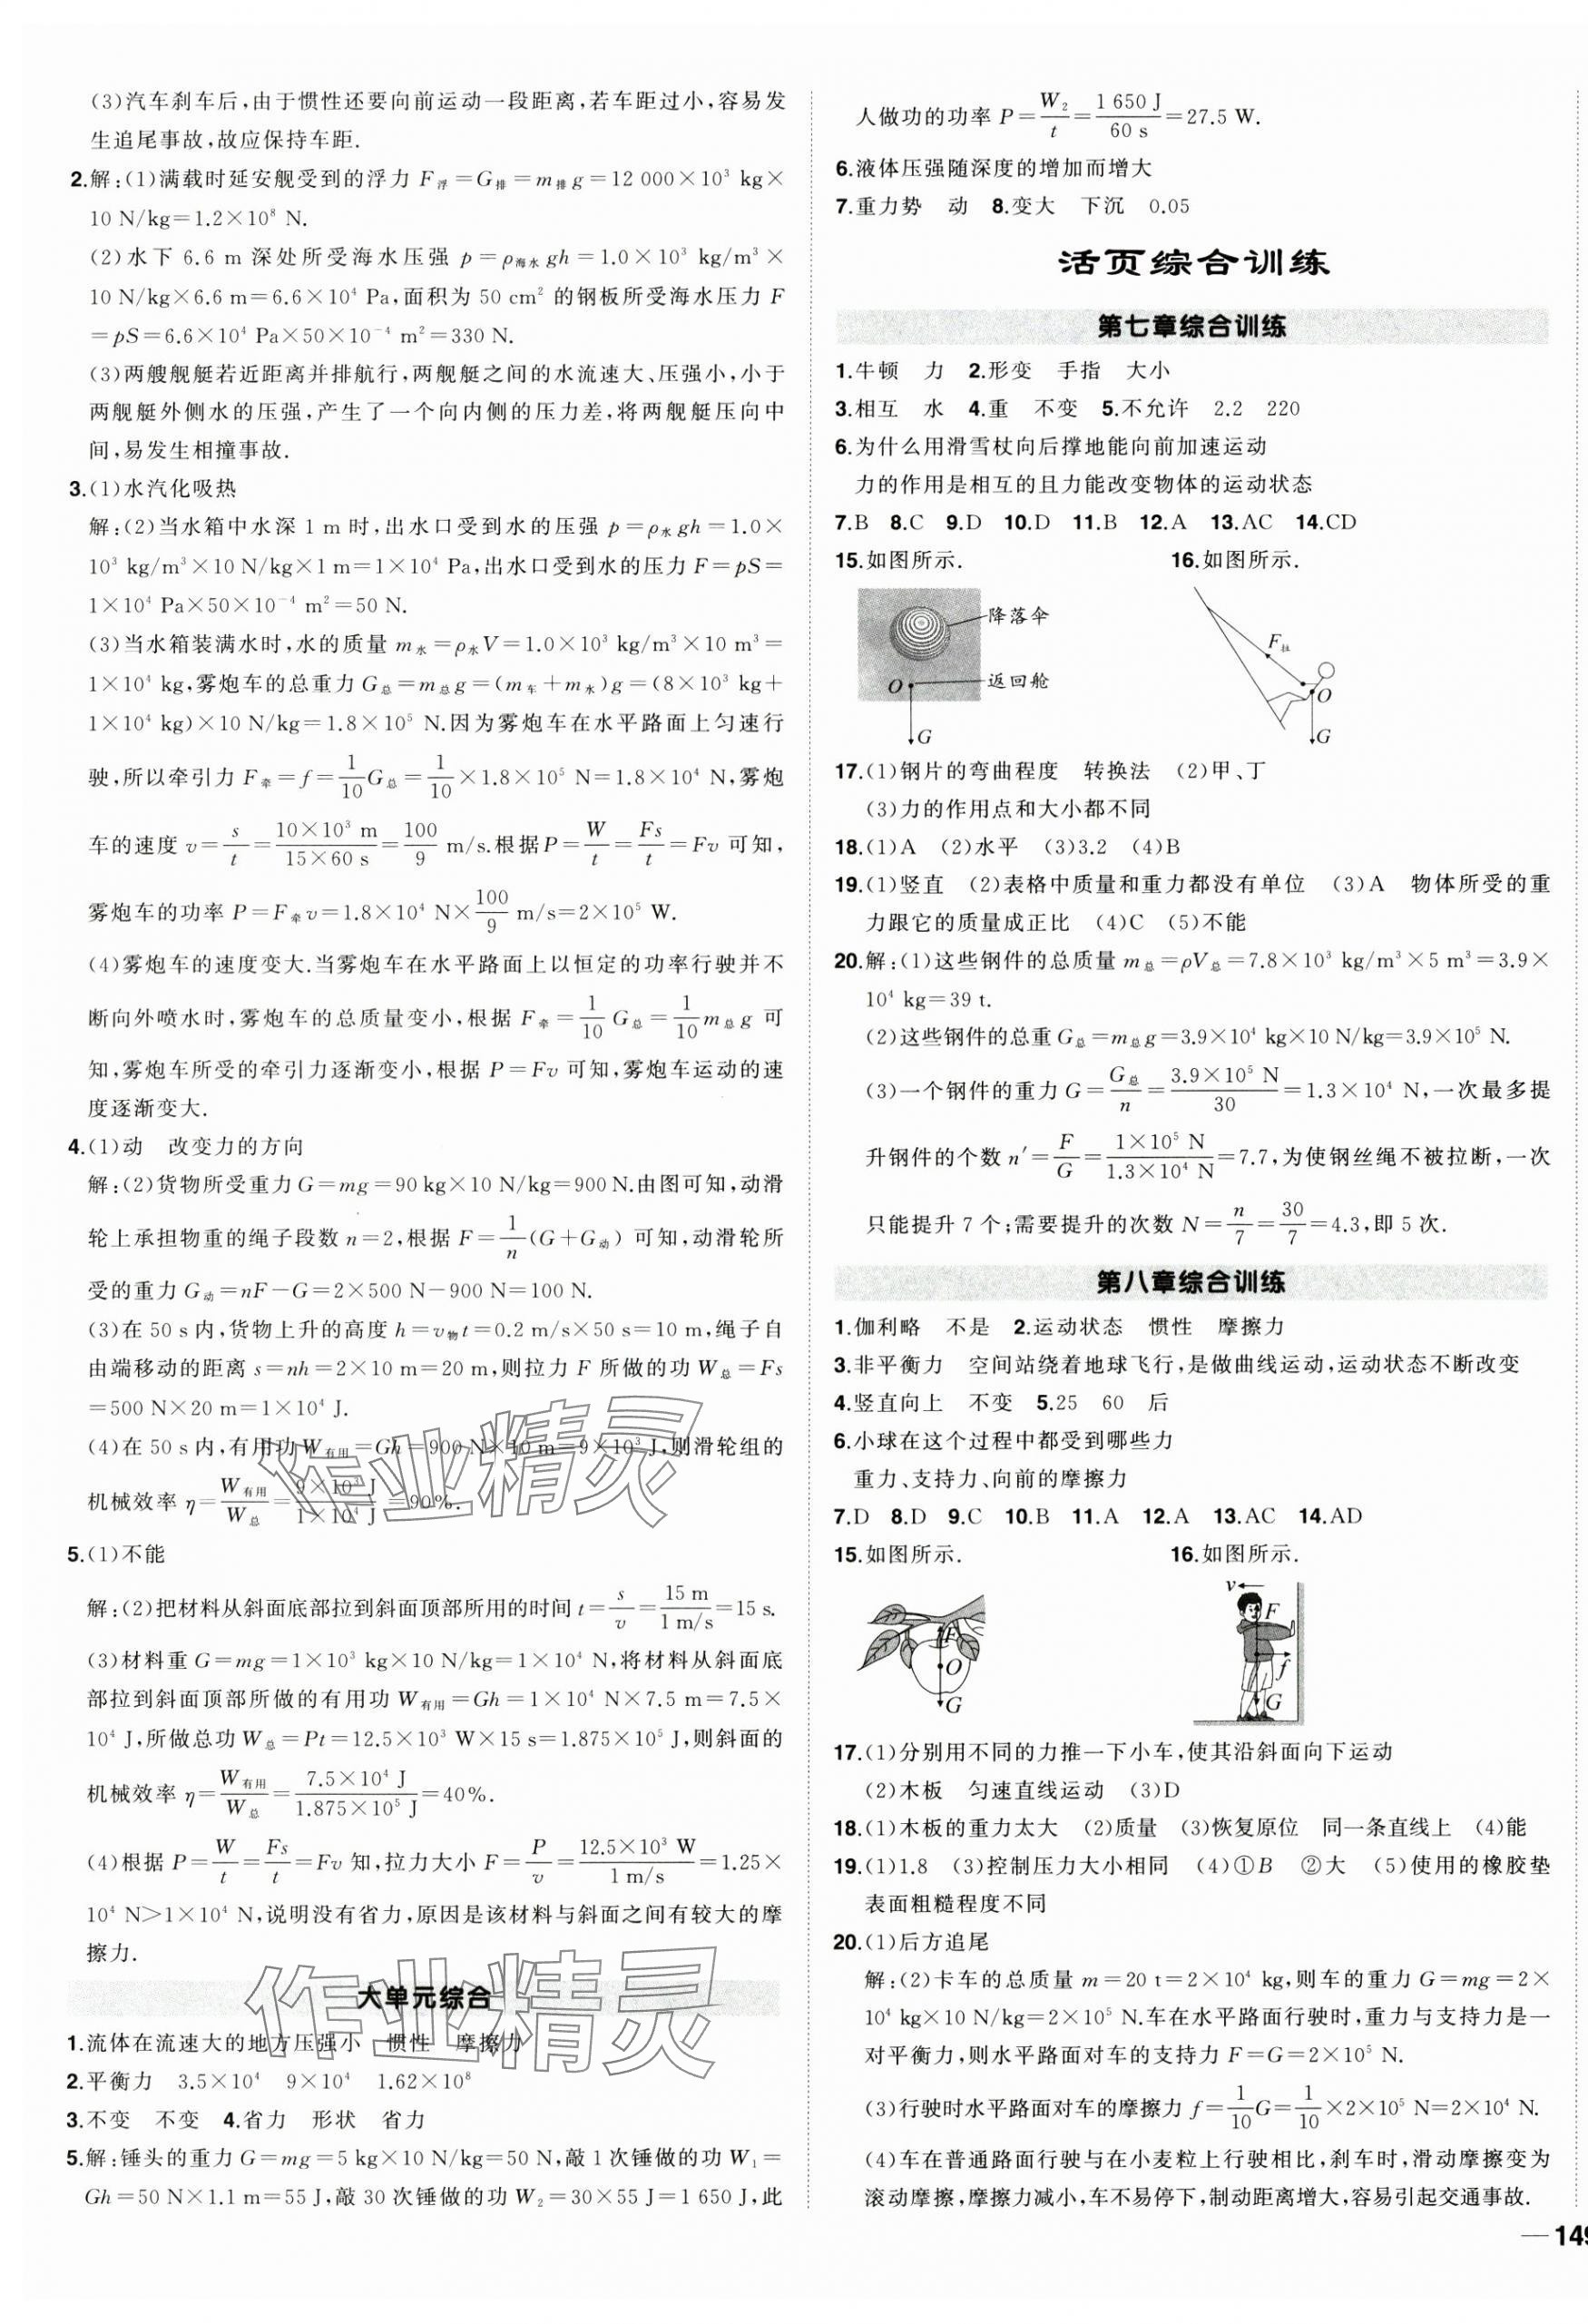 (3)汽车刹车后,由于惯性还要向前运动一段距离,若车距过小,容易发
生追尾事故,故应保持车距.
2.解:(1)满载时延安舰受到的浮力 F浮=G排=m排g=12 000×10³ kg×
10 N/kg=1.2×10⁸ N.
(2)水下 6.6 m 深处所受海水压强 p=ρ海水gh=1.0×10³ kg/m³×
10 N/kg×6.6 m=6.6×10⁴ Pa,面积为 50 cm² 的钢板所受海水压力 F
=pS=6.6×10⁴ Pa×50×10⁻⁴ m²=330 N.
(3)两艘舰艇若近距离并排航行,两舰艇之间的水流速大、压强小,小于
两舰艇外侧水的压强,产生了一个向内侧的压力差,将两舰艇压向中
间,易发生相撞事故.
3.(1)水汽化吸热
解:(2)当水箱中水深 1 m 时,出水口受到水的压强 p=ρ水gh=1.0×
10³ kg/m³×10 N/kg×1 m=1×10⁴ Pa,出水口受到水的压力 F=pS=
1×10⁴ Pa×50×10⁻⁴ m²=50 N.
(3)当水箱装满水时,水的质量 m水=ρ水V=1.0×10³ kg/m³×10 m³=
1×10⁴ kg,雾炮车的总重力 G总=m总g=(m车+m水)g=(8×10³ kg+
1×10⁴ kg)×10 N/kg=1.8×10⁵ N.因为雾炮车在水平路面上匀速行
驶,所以牵引力 F牵=f=1/10 G总=1/10×1.8×10⁵ N=1.8×10⁴ N,雾炮
车的速度 v=s/t=10×10³ m/15×60 s=100/9 m/s.根据P=W/t=Fs/t=Fv 可知,
雾炮车的功率 P=F牵v=1.8×10⁴ N×100/9 m/s=2×10⁵ W.
(4)雾炮车的速度变大.当雾炮车在水平路面上以恒定的功率行驶并不
断向外喷水时,雾炮车的总质量变小,根据 F牵=1/10 G总=1/10 m总g 可
知,雾炮车所受的牵引力逐渐变小,根据 P=Fv 可知,雾炮车运动的速
度逐渐变大.
4.(1)动 改变力的方向
解:(2)货物所受重力G=mg=90 kg×10 N/kg=900 N.由图可知,动滑
轮上承担物重的绳子段数 n=2,根据 F=1/n(G+G动)可知,动滑轮所
受的重力 G动=nF-G=2×500 N-900 N=100 N.
(3)在 50 s 内,货物上升的高度 h=v物t=0.2 m/s×50 s=10 m,绳子自
由端移动的距离 s=nh=2×10 m=20 m,则拉力 F 所做的功 W总=Fs
=500 N×20 m=1×10⁴ J.
(4)在 50 s 内,有用功W有用=Gh=900 N×10 m=9×10³ J,则滑轮组的
机械效率 η=W有用/W总=9×10³ J/1×10⁴ J=90%.
5.(1)不能
解:(2)把材料从斜面底部拉到斜面顶部所用的时间 t=s/v=15 m/1 m/s=15 s.
(3)材料重 G=mg=1×10³ kg×10 N/kg=1×10⁴ N,将材料从斜面底
部拉到斜面顶部所做的有用功 W有用=Gh=1×10⁴ N×7.5 m=7.5×
10⁴ J,所做总功 W总=Pt=12.5×10³ W×15 s=1.875×10⁵ J,则斜面的
机械效率 η=W有用/W总=7.5×10⁴ J/1.875×10⁵ J=40%.
(4)根据 P=W/t=Fs/t=Fv 知,拉力大小 F=P/v=12.5×10³ W/1 m/s=1.25×
10⁴ N>1×10⁴ N,说明没有省力,原因是该材料与斜面之间有较大的摩
擦力.
大单元综合
1.流体在流速大的地方压强小 惯性 摩擦力
2.平衡力 3.5×10⁴ 9×10⁴ 1.62×10⁸
3.不变 不变 4.省力 形状 省力
5.解:锤头的重力 G=mg=5 kg×10 N/kg=50 N,敲 1 次锤做的功 W₁=
Gh=50 N×1.1 m=55 J,敲 30 次锤做的功 W₂=30×55 J=1 650 J,此
人做功的功率 P=W₂/t=1 650 J/60 s=27.5 W.
6.液体压强随深度的增加而增大
7.重力势 动 8.变大 下沉 0.05
活页综合训练
第七章综合训练
1.牛顿 力 2.形变 手指 大小
3.相互 水 4.重 不变 5.不允许 2.2 220
6.为什么用滑雪杖向后撑地能向前加速运动
力的作用是相互的且力能改变物体的运动状态
7.B 8.C 9.D 10.D 11.B 12.A 13.AC 14.CD
15.如图所示. 16.如图所示.
降落伞
O 返回舱
G
F拉
O
G
17.(1)钢片的弯曲程度 转换法 (2)甲、丁
(3)力的作用点和大小都不同
18.(1)A (2)水平 (3)3.2 (4)B
19.(1)竖直 (2)表格中质量和重力都没有单位 (3)A 物体所受的重
力跟它的质量成正比 (4)C (5)不能
20.解:(1)这些钢件的总质量 m总=ρV总=7.8×10³ kg/m³×5 m³=3.9×
10⁴ kg=39 t.
(2)这些钢件的总重 G总=m总g=3.9×10⁴ kg×10 N/kg=3.9×10⁵ N.
(3)一个钢件的重力 G=G总/n=3.9×10⁵ N/30=1.3×10⁴ N,一次最多提
升钢件的个数 n′=F/G=1×10⁵ N/1.3×10⁴ N=7.7,为使钢丝绳不被拉断,一次
只能提升 7 个;需要提升的次数 N=n/7=30/7=4.3,即 5 次.
第八章综合训练
1.伽利略 不是 2.运动状态 惯性 摩擦力
3.非平衡力 空间站绕着地球飞行,是做曲线运动,运动状态不断改变
4.竖直向上 不变 5.25 60 后
6.小球在这个过程中都受到哪些力
重力、支持力、向前的摩擦力
7.D 8.D 9.C 10.B 11.A 12.A 13.AC 14.AD
15.如图所示. 16.如图所示.
F
O
G
v
F
f
G
17.(1)分别用不同的力推一下小车,使其沿斜面向下运动
(2)木板 匀速直线运动 (3)D
18.(1)木板的重力太大 (2)质量 (3)恢复原位 同一条直线上 (4)能
19.(1)1.8 (3)控制压力大小相同 (4)①B ②大 (5)使用的橡胶垫
表面粗糙程度不同
20.(1)后方追尾
解:(2)卡车的总质量 m=20 t=2×10⁴ kg,则车的重力 G=mg=2×
10⁴ kg×10 N/kg=2×10⁵ N.车在水平路面行驶时,重力与支持力是一
对平衡力,则水平路面对车的支持力 F=G=2×10⁵ N.
(3)行驶时水平路面对车的摩擦力 f=1/10 G=1/10×2×10⁵ N=2×10⁴ N.
(4)车在普通路面行驶与在小麦粒上行驶相比,刹车时,滑动摩擦变为
滚动摩擦,摩擦力减小,车不易停下,制动距离增大,容易引起交通事故.
— 149
作业精灵
作业精灵